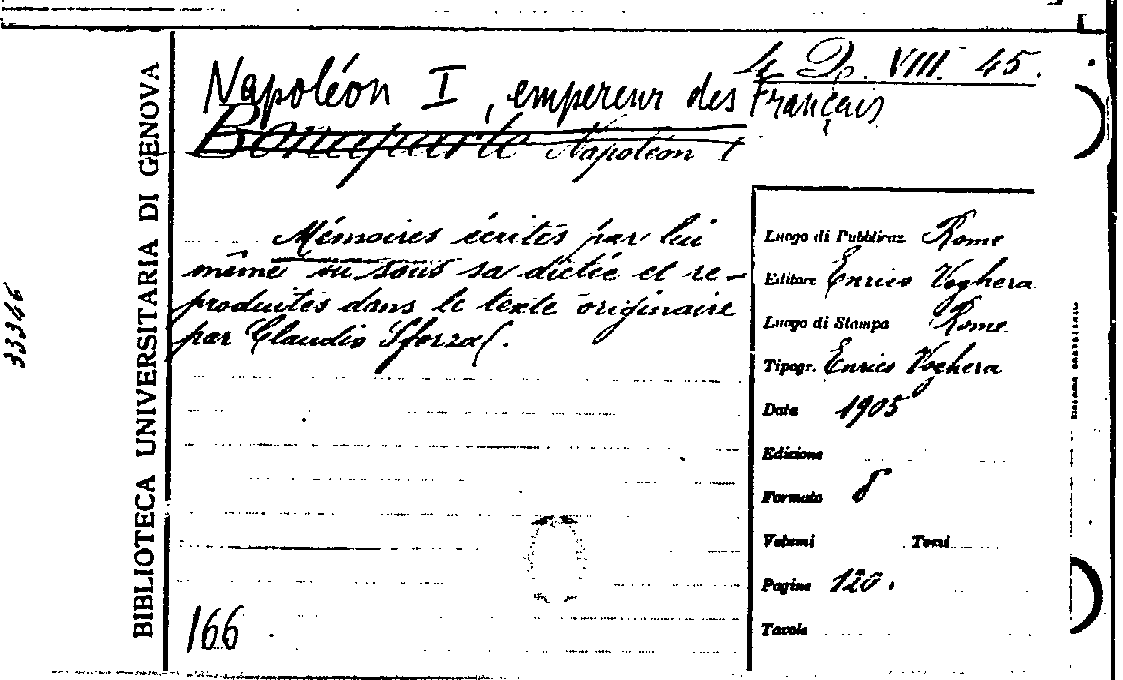 4 D. VIII. 45.
Napoléon I, empereur des Français
Bonaparte Napoléon I
Mémoires écrites par lui
même ou sous sa dictée et re-
produites dans le texte originaire
par Claudio Sforza.
166
BIBLIOTECA UNIVERSITARIA DI GENOVA
33346
Luogo di Pubblicaz. Rome
Editore Enrico Voghera
Luogo di Stampa Rome
Tipogr. Enrico Voghera
Data 1905
Edizione
Formato 8
Volumi Tomi
Pagine 120.
Tavole